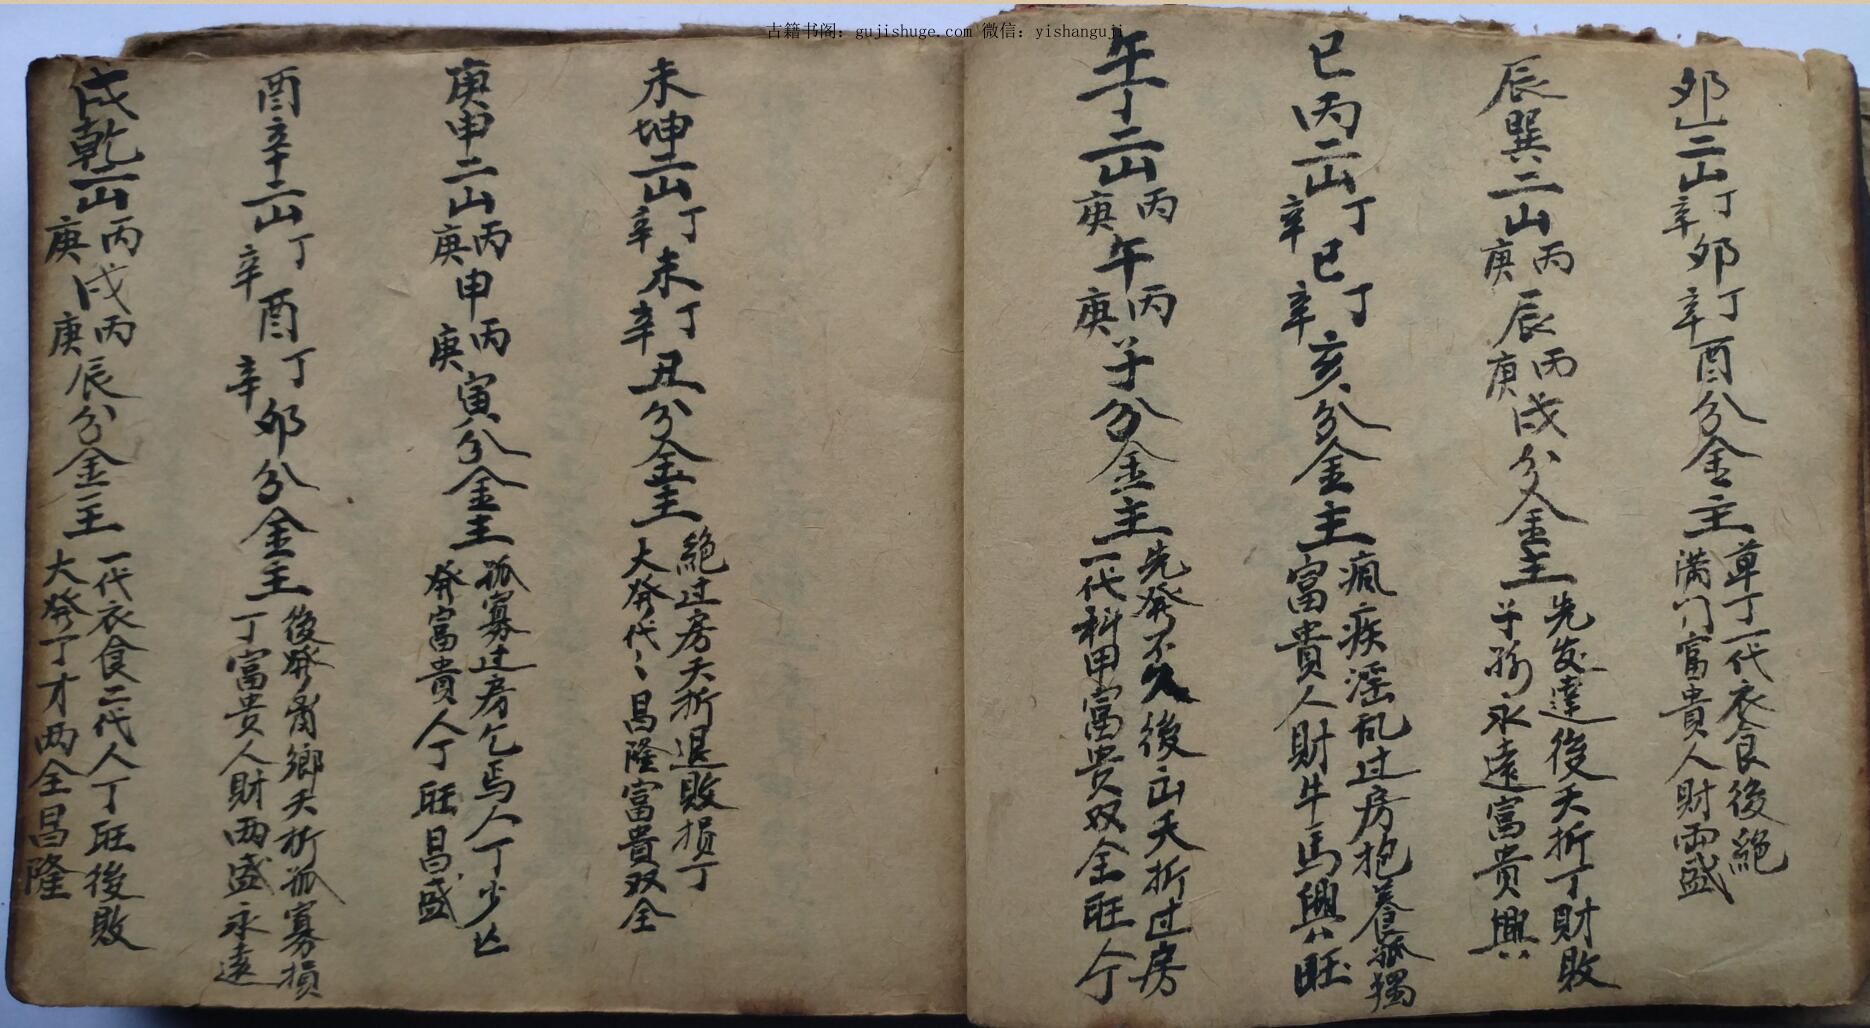 古籍书阁：gujishuge.com 微信：yishanguji
卯乙二山丁辛卯丁辛酉分金主草丁一代衣食後絕满门富貴人財両盛
辰巽二山丙庚辰丙庚戌分金主先发達後夭折丁財敗子孫永遠富贵興
巳丙二山丁辛巳丁辛亥分金主瘋疾淫乱过房抱養孤獨富貴人財牛馬興旺
午丁二山丙庚午丙庚子分金主先發不久後出夭折过房一代科甲富贵双全旺人丁
未坤二山丁辛未丁辛丑分金主絕过房夭折退敗損丁大發代〻昌隆富貴双全
庚申二山丙庚申丙庚寅分金主孤寡过房乞焉人丁少亡發富貴人丁旺昌盛
酉辛二山丁辛酉丁辛卯分金主後發离鄉夭折孤寡損丁富贵人財両盛永遠
戌乾二山丙庚戌丙庚辰分金主一代衣食二代人丁旺後敗大發丁才両全昌隆